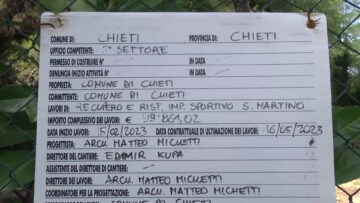 COMUNE DI: CHIETI PROVINCIA DI: CHIETI
UFFICIO COMPETENTE: SETTORE
PERMESSO DI COSTRUIRE N° IN DATA
DENUNCIA INIZIO ATTIVITÀ N° IN DATA
PROPRIETÀ: COMUNE DI CHIETI
COMMITTENTE: COMUNE DI CHIETI
LAVORI DI: RECUPERO E RIST. IMP. SPORTIVO S. MARTINO
IMPORTO COMPLESSIVO DEI LAVORI: €
DATA INIZIO LAVORI: 15/02/2023 DATA CONTRATTUALE DI ULTIMAZIONE DEI LAVORI: 16/05/2023
PROGETTISTA: ARCH. MATTEO MICHETTI
DIRETTORE DEL CANTIERE: EDIMIR KUPA
ASSISTENTE DEL DIRETTORE DI CANTIERE:
DIRETTORE DEI LAVORI: ARCH. MATTEO MICHETTI
COORDINATORE PER LA PROGETTAZIONE: ARCH. MATTEO MICHETTI
COMUNE DI CHIETI